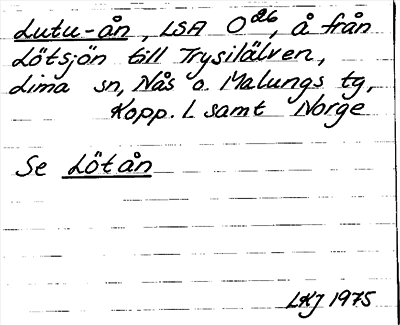 Lutu-ån, LSA O26, å från
Lötsjön till Trysilälven,
Lima sn, Nås o. Malungs tg,
Kopp. l samt Norge
Se Lötån
LKJ 1975